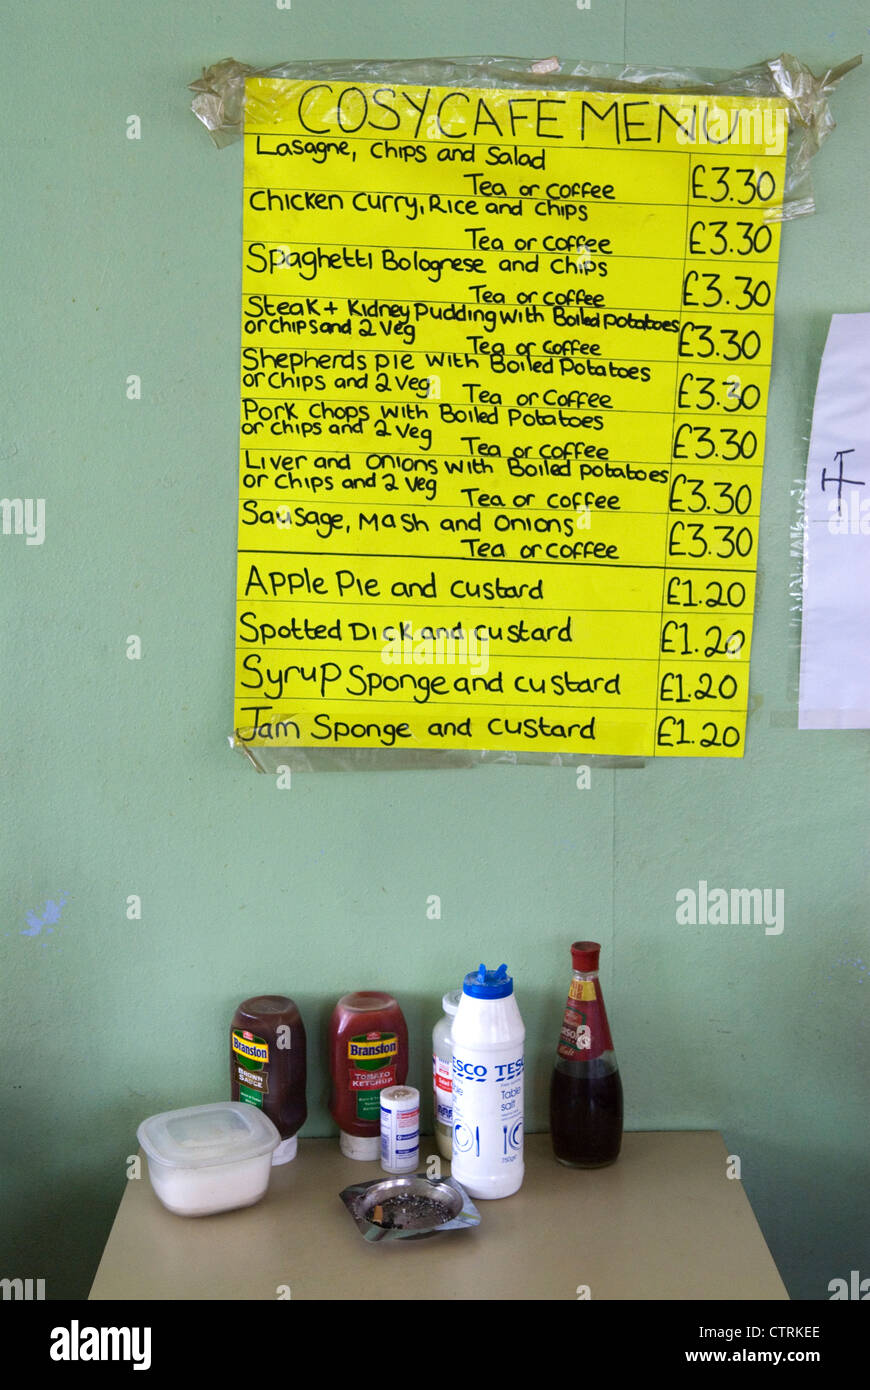 COSY CAFE MENU
Lasagne, Chips and Salad
Tea or coffee £3.30
Chicken Curry, Rice and Chips
Tea or coffee £3.30
Spaghetti Bolognese and Chips
Tea or coffee £3.30
Steak + Kidney Pudding with Boiled Potatoes
or chips and 2 veg Tea or coffee £3.30
Shepherds Pie with Boiled Potatoes
or Chips and 2 veg Tea or Coffee £3.30
Pork Chops with Boiled Potatoes
or chips and 2 veg Tea or coffee £3.30
Liver and Onions with Boiled Potatoes
or Chips and 2 veg Tea or coffee £3.30
Sausage, Mash and Onions
Tea or coffee £3.30
Apple Pie and custard £1.20
Spotted Dick and custard £1.20
Syrup Sponge and custard £1.20
Jam Sponge and custard £1.20
Branston
BROWN
SAUCE
Branston
TOMATO
KETCHUP
ESCO TESC
Table
salt
750g
alamy
Image ID: CTRKEE
www.alamy.com